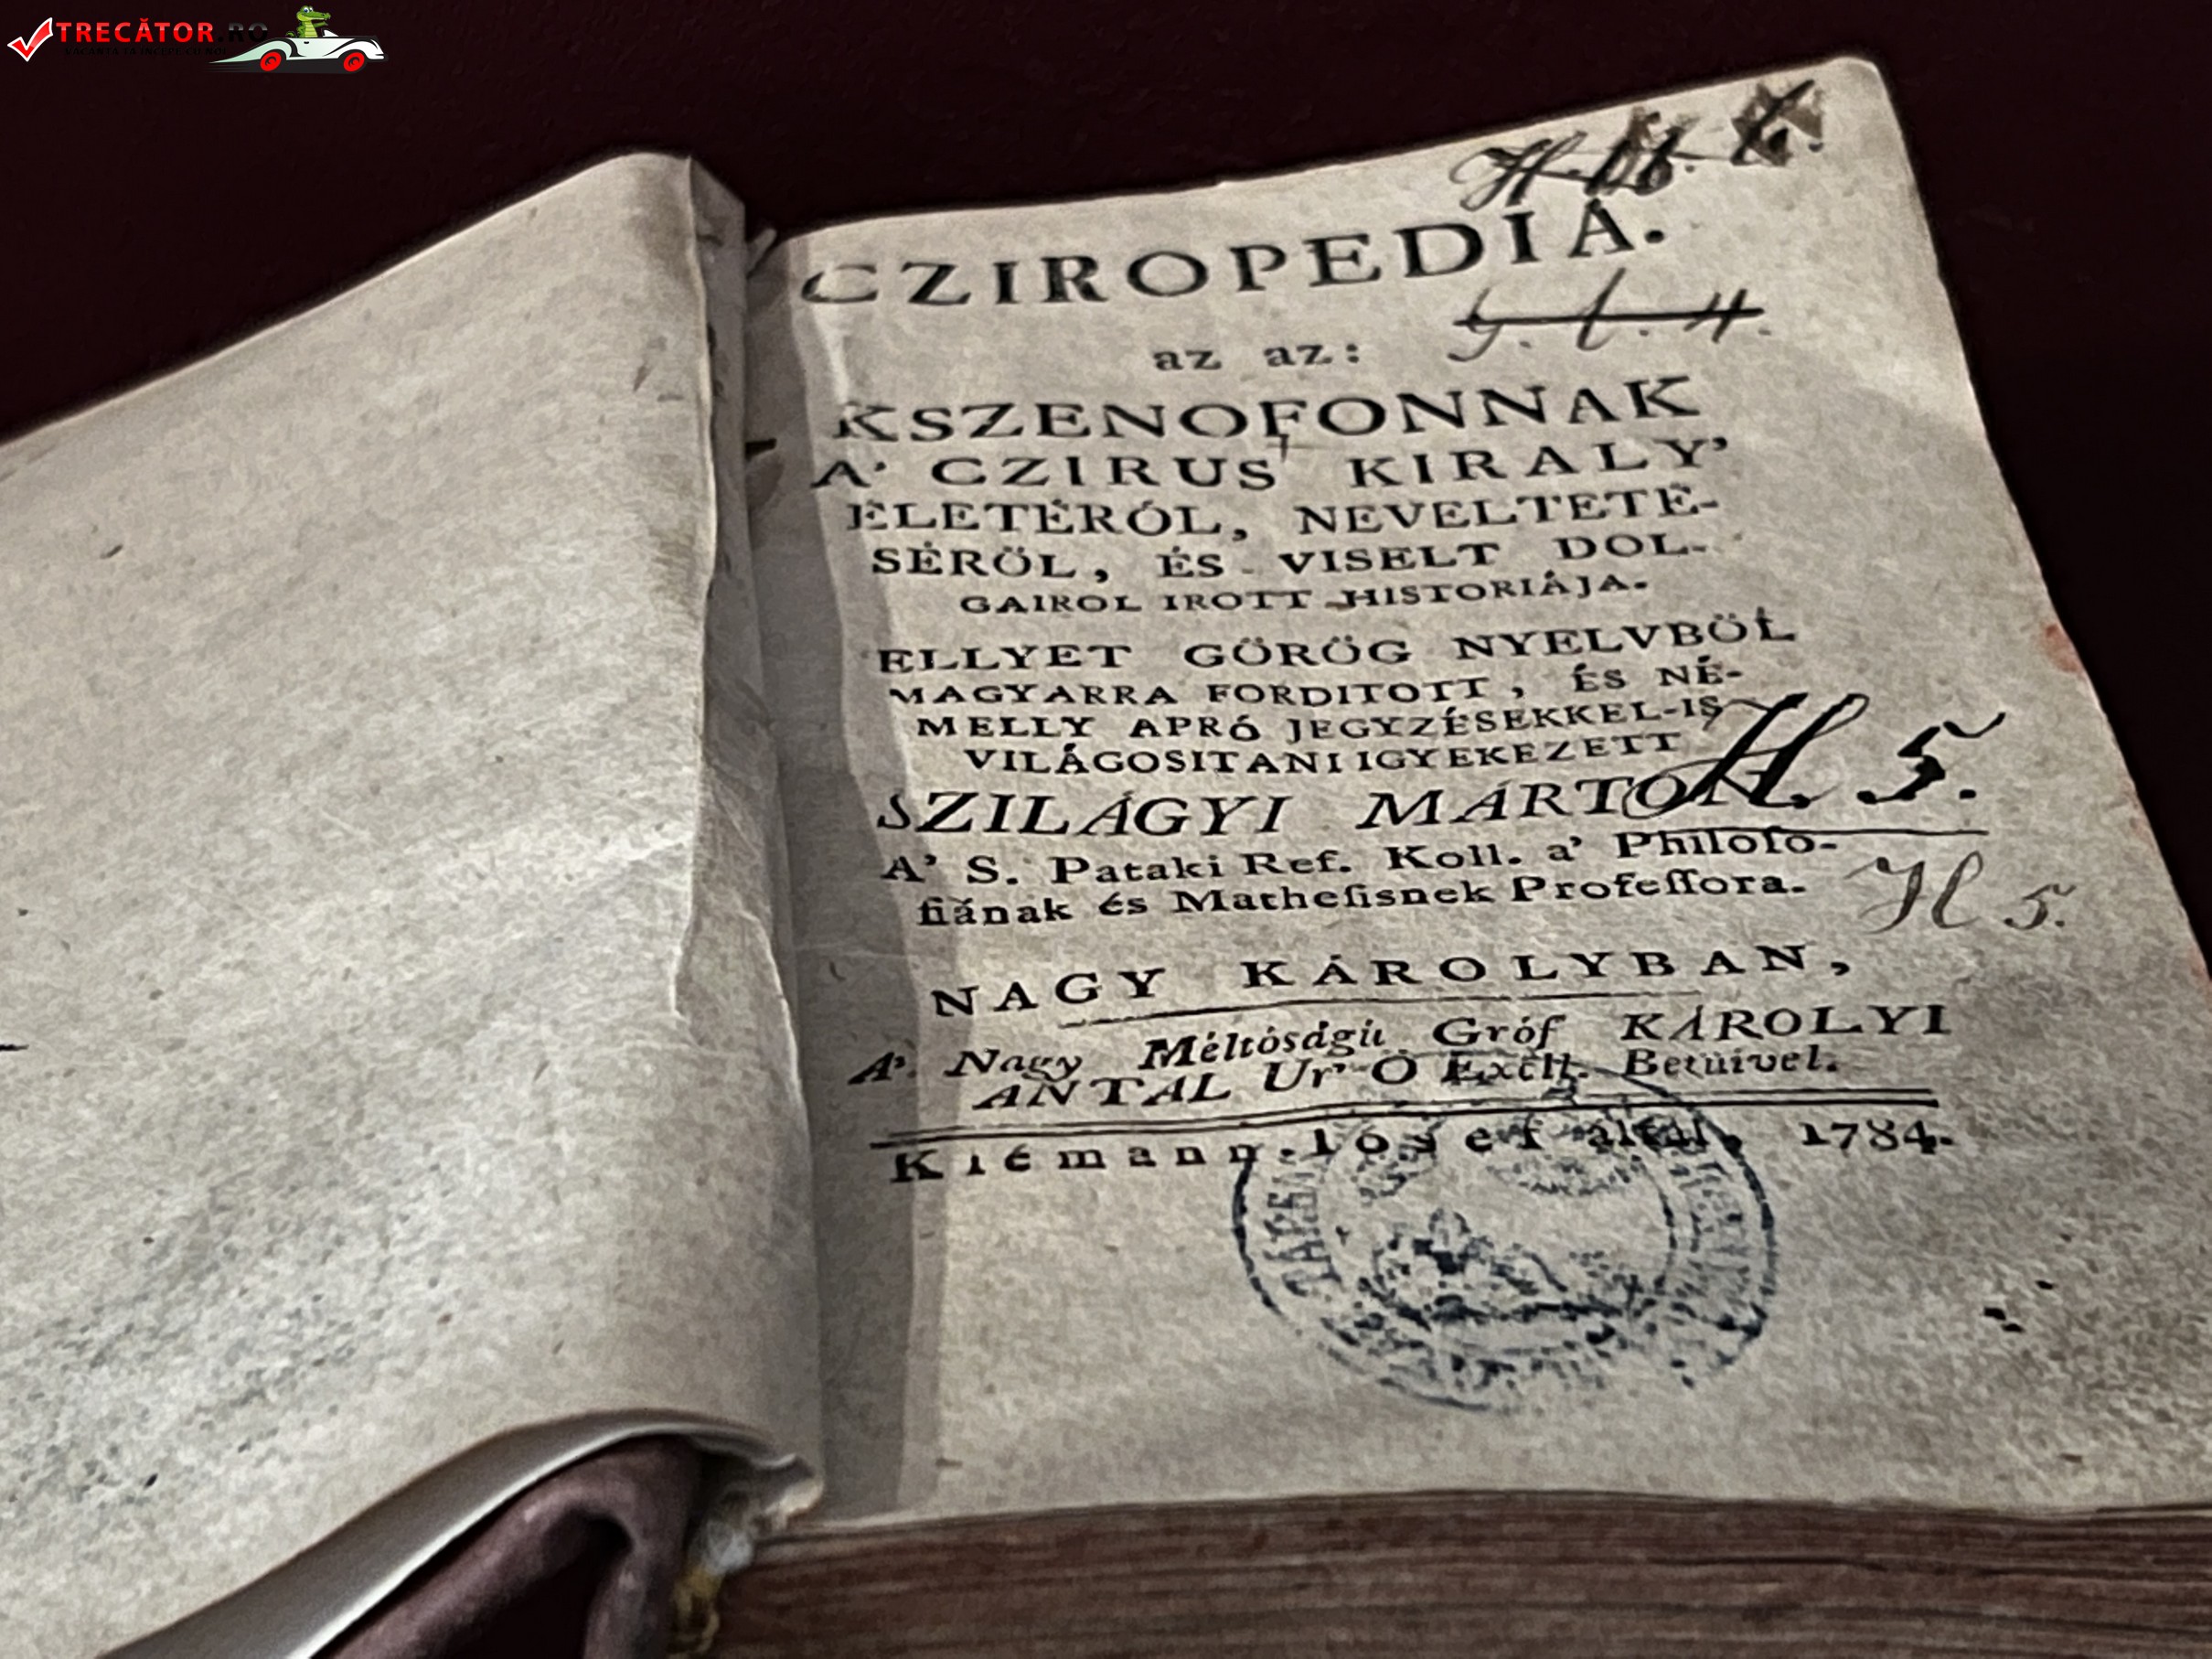 TRECĂTOR.RO
VACANȚA TA ÎNCEPE CU NOI
CZIROPEDIÁ.
az az:
KSZENOFONNAK
A' CZIRUS KIRALY'
ÉLETÉRÓL, NEVELTETÉ-
SÉRÖL, ÉS VISELT DOL-
GAIROL IROTT HISTORIÁJA.
ELLYET GÖRÖG NYELVBÖL
MAGYARRA FORDITOTT, ÉS NÉ-
MELLY APRÓ JEGYZÉSEKKEL-IS
VILÁGOSITANI IGYEKEZETT
SZILÁGYI MÁRTON.
H. 5.
A' S. Pataki Ref. Koll. a' Philoſo-
fiának és Matheſisnek Profeſſora.
H 5.
NAGY KÁROLYBAN,
A' Nagy Méltóságú Gróf KÁROLYI
ANTAL Ur' Ö Exčll. Betüivel.
Klémann Jósef által, 1784.